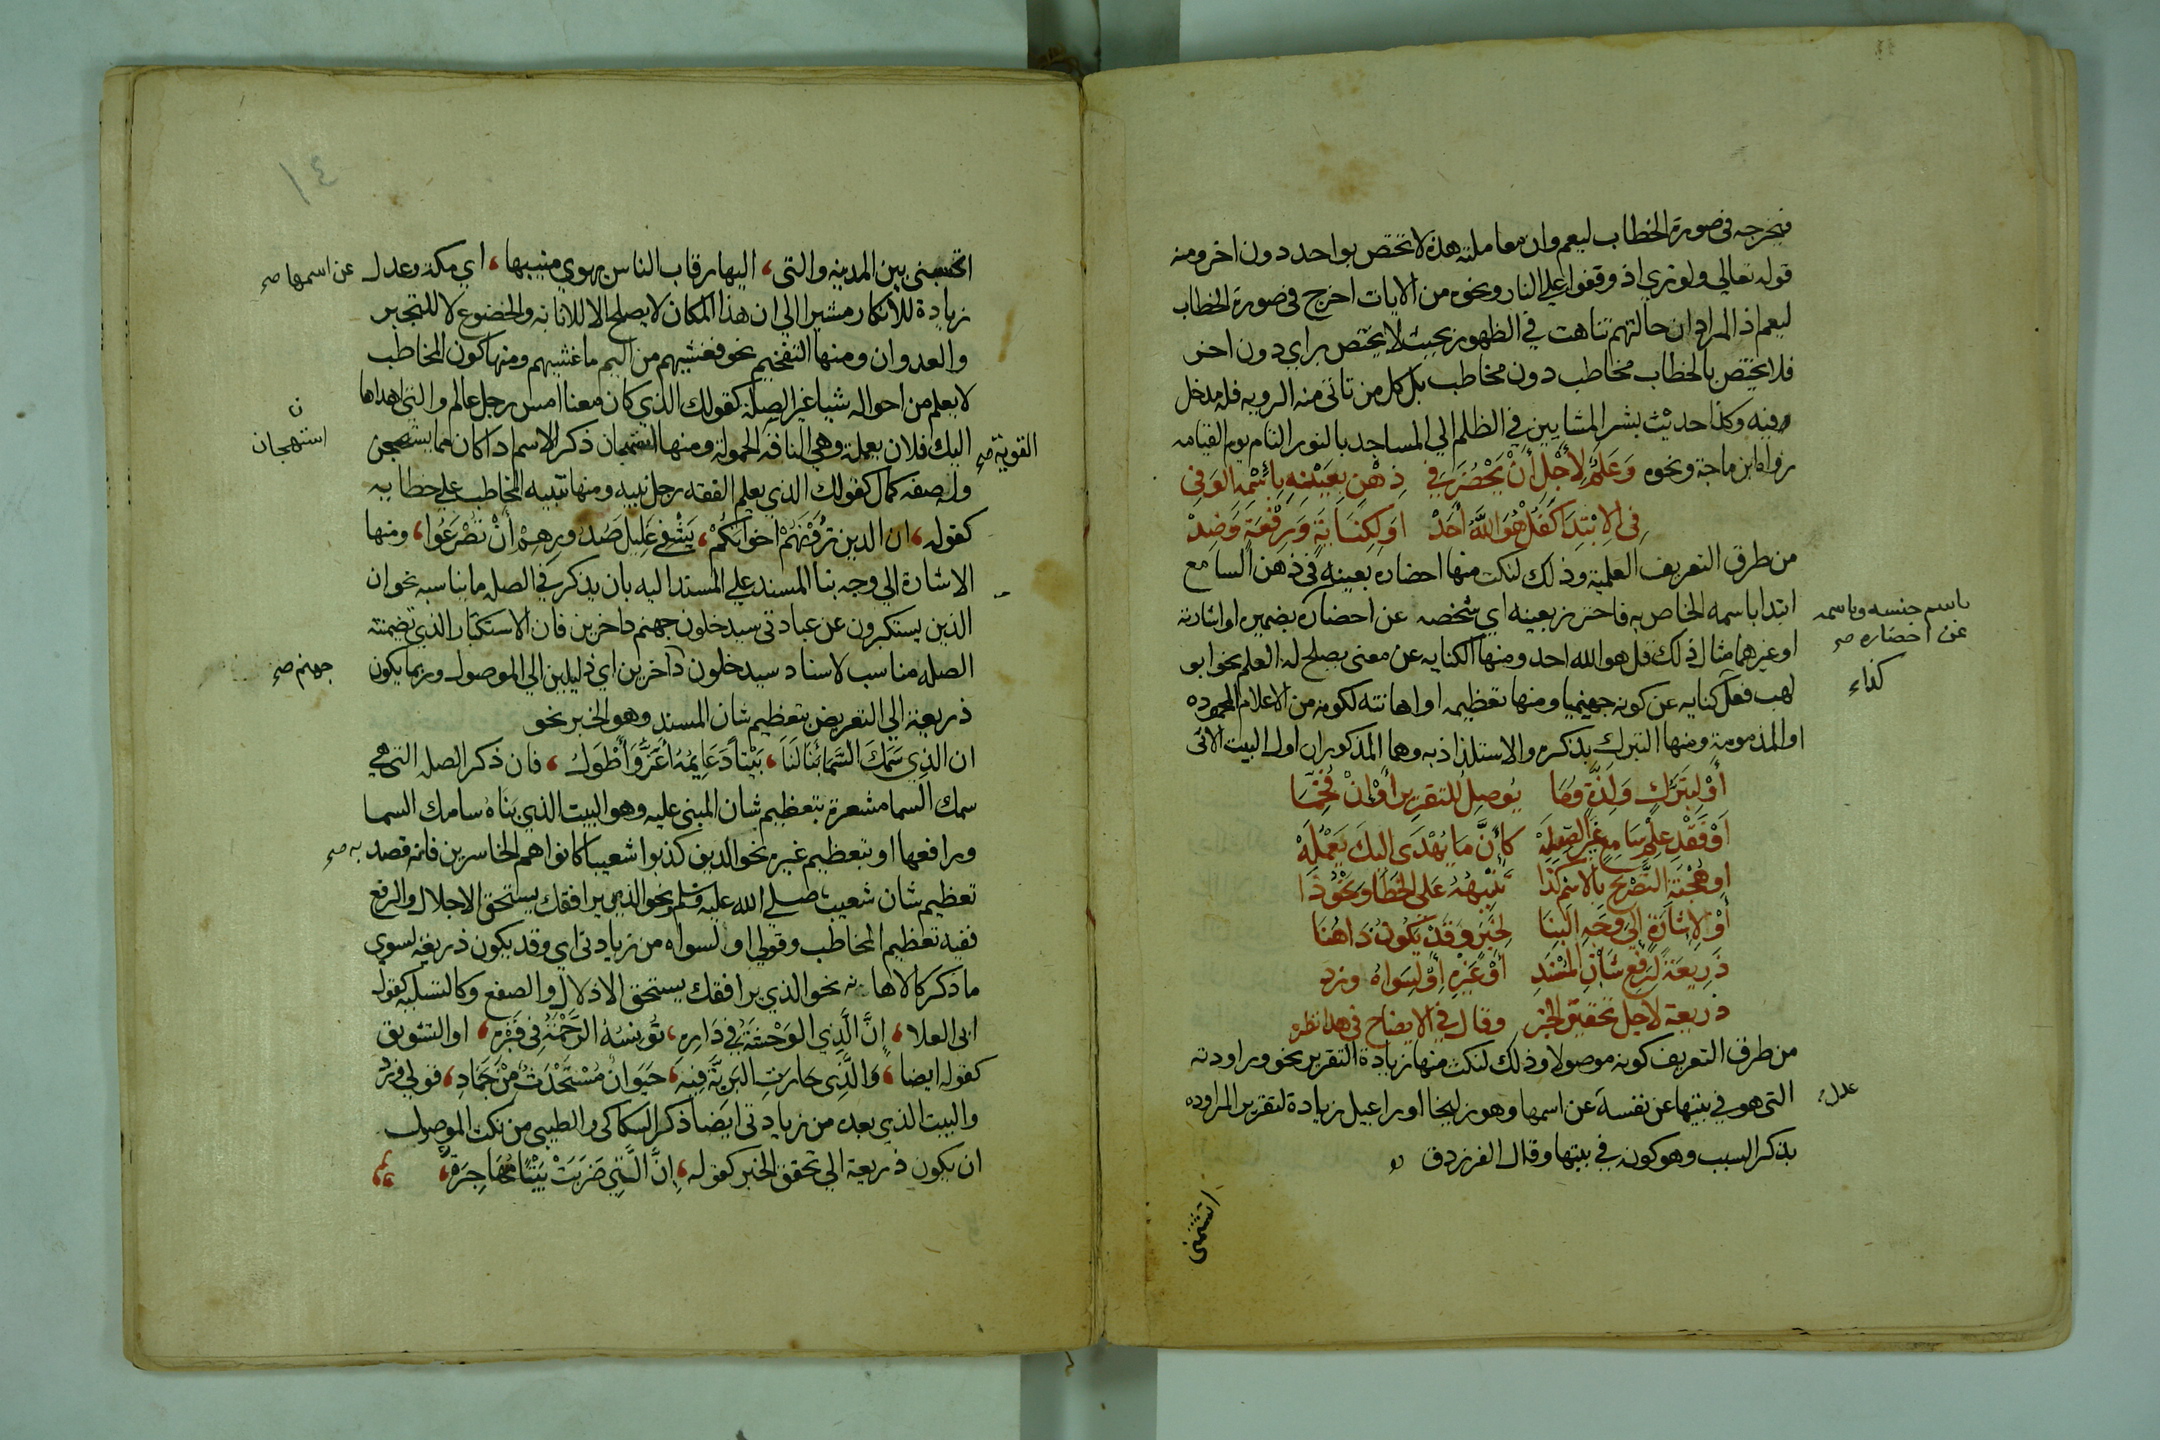 فيخرجه في صورة الخطاب ليعم وان معاملته هذه لا تختص بواحد دون اخر ومنه
قوله تعالي ولو تري اذ وقفوا علي النار ونحوه من الايات اخرج في صورة الخطاب
ليعم اذ المراد ان حالتهم تناهت في الظهور بحيث لا يختص براي دون اخر
فلا يختص بالخطاب مخاطب دون مخاطب بل كل من تاتي منه الرويه فله مدخل
فيه وكذا حديث بشر المشايين في الظلم الي المساجد بالنور التام يوم القيامه
رواه ابن ماجة ونحوه وَعَلَمٌ لِأَجْلِ أَنْ يَحْضُرَ فِي ذِهْنٍ بِعَيْنِهِ بِاسْمِهِ الوَفِي
فِي الِابْتِدَا كَقُلْ هُوَ اللَّهُ أَحَدْ اَوْ لِكِنَايَةٍ وَرِفْعَةٍ وَضِدْ
من طرق التعريف العلمية وذلك لنكت منها احضاره بعينه في ذهن السامع
ابتدا باسمه الخاص به فاحترز بعينه اي شخصه عن احضاره بضميره او اشارته
باسم جنسه وباسمه
عن احضاره صح
او غيرهما مثال ذلك قل هو الله احد ومنها الكنايه عن معني يصلح له العلم نحو ابو
كذاء
لهب فعل كنايه عن كونه جهنميا ومنها تعظيمه او اهانته لكونه من الاعلام المحموده
او المذمومة ومنها التبرك بذكره والاستلذاذ به وهما المذكوران اول البيت الاتي
أَوْ لِتَبَرُّكٍ وَلَذَّةٍ وَمَا يُوصِلُ لِلتقرير أَوْ اِنْ فُخِّمَا
أَوْ فَقْدِ عِلْمِ سَامِعٍ غَيْرَ الصِّلَهْ كَأَنَّ مَا يُهْدَى اليكَ يَعْمُلَهْ
اوهُجْنَةِ التَّصْرِيحِ بِالاسْمِ كَذَا تَنْبِيْهُهُ عَلَى الخَطَا وَنَحْوُ ذَا
أَوْ لِاشَارَةٍ اِلَى وَجْهِ الْبِنَا لِخَبَرٍ وَقَدْ يَكُونُ ذَا هُنَا
ذَرِيعَةً لِرَفْعِ شَأْنِ الْمُسْنَدِ أَوْ غَيْرِهِ أَوْ لِسِوَاهُ وزد
ذريعة لاجل تحقيق الخبر وقال في الايضاح في هذا نظر
من طرق التعريف كونه موصولا وذلك لنكت منها زيادة التقرير نحو وراودته
التي هو في بيتها عن نفسه عن اسمها وهو زليخا او راعيل زيادة لتقرير المراوده
عدل
بذكر السبب وهو كونه في بيتها وقال الفرزدق
اتحسبني بين المدينه والتي ، اليها رقاب الناس يهوي منيبها ، اي مكة وعدل
عن اسمها صح
زيادة للانكار مشيرا الي ان هذا المكان لا يصلح الا للانابه والخضوع لا للتجبر
والعدوان ومنها التفخيم نحو فغشيهم من اليم ما غشيهم ومنها كون المخاطب
لا يعلم من احواله شيا غير الصلة كقولك الذي كان معنا امس رجل عالم والتي اهداها
اليك فلان يعملة وهي الناقه الحمولة ومنها استهجان ذكر الاسم اذا كان مما يستهجن
القوية صح
ن
استهجان
وله صفه كمال كقولك الذي يعلم الفقه رجل نبيه ومنها تنبيه المخاطب علي خطايه
كقوله ، ان الذين تُرَوْنَهُمْ اخوانَكُمْ ، يَشْفِي غَلِيلَ صُدورِهِمُ أَنْ تُصْرَعُوا ، ومنها
الاشارة الي وجه بنا المسند علي المسند اليه بان يذكر في الصله ما يناسبه نحو ان
الذين يستكبرون عن عبادتي سيدخلون جهنم داخرين فان الاستكبار الذي تضمنته
الصله مناسب لاسناد سيدخلون داخرين اي ذليلين الي الموصول وربما يكون
جهنم صح
ذريعة الي التعريض بتعظيم شان المسند وهو الخبر نحو
ان الذِي سَمَكَ السَّمَا بَنَا لَنَا ، بَيْتاً دَعَايِمُهُ أَعَزُّ وَأَطْوَلُ ، فان ذكر الصله التي هي
سمك السما مشعرة بتعظيم شان المبني عليه وهو البيت الذي بَنَاهُ سامك السما
ورافعها او بتعظيم غيره نحو الذين كذبوا شعيبا كانوا هم الخاسرين فانه قصد
به صح
تعظيم شان شعيب صلي الله عليه وسلم ونحو الذي يرافقك يستحق الاجلال والرفع
ففيه تعظيم المخاطب وقولي او لسواه من زيادتي اي وقد يكون ذريعة لسوي
ما ذكر كالاهانه نحو الذي يرافقك يستحق الاذلال والصفع وكالتسليه كقول
ابي العلا ، إِنَّ الَّذِي الوَحْشَةُ فِي دَارِهِ ، تُونِسُهُ الرَّحْمَةُ فِي قَبْرِهِ ، او التشويق
كقوله ايضا ، وَالَّذِي حَارَتِ البَرِيَّةُ فِيهِ ، حَيَوانٌ مُسْتَحْدَثٌ مِنْ جَمَادِ ، قولي وزد
والبيت الذي بعده من زيادتي ايضا ذكر السكاكي والطيبي من نكت الموصول
ان يكون ذريعة الي تحقق الخبر كقوله ، إِنَّ الَّتِي ضَرَبَتْ بَيْتًا مُهَاجِرَةً ،